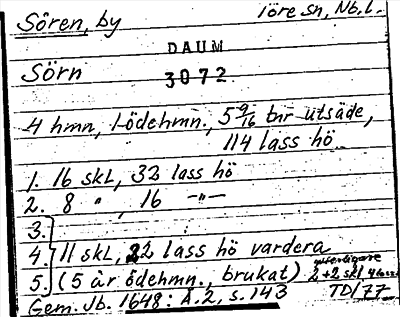 Sören, by Töre sn, Nb.l.
DAUM
Sörn 3072
4 hmn, 1 ödehmn., 5 9/16 tnr utsäde,
114 lass hö
1. 16 skl, 32 lass hö
2. 8 " , 16 -"-
3.
4. 11 skl, 22 lass hö vardera
5. (5 är ödehmn., brukat) ytterligare 2+2 skl
Gem. Jb. 1648: A.2, s. 143 TD/77